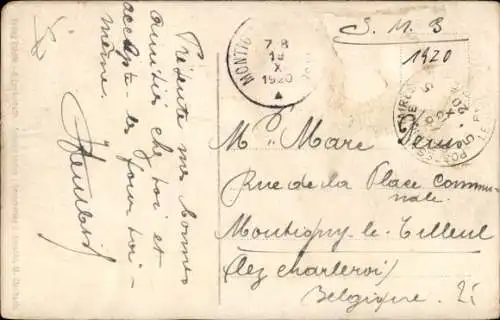 Présente mes bonnes
amitiés chez toi et
accepte-les pour toi-
même.
S. M. B
1920
MONTIG
7-8
18
X
1920
POSTES
Mr. Marc
Rue de la Place Commu-
nale.
Montigny-le-Tilleul
(lez Charleroi)
Belgique.